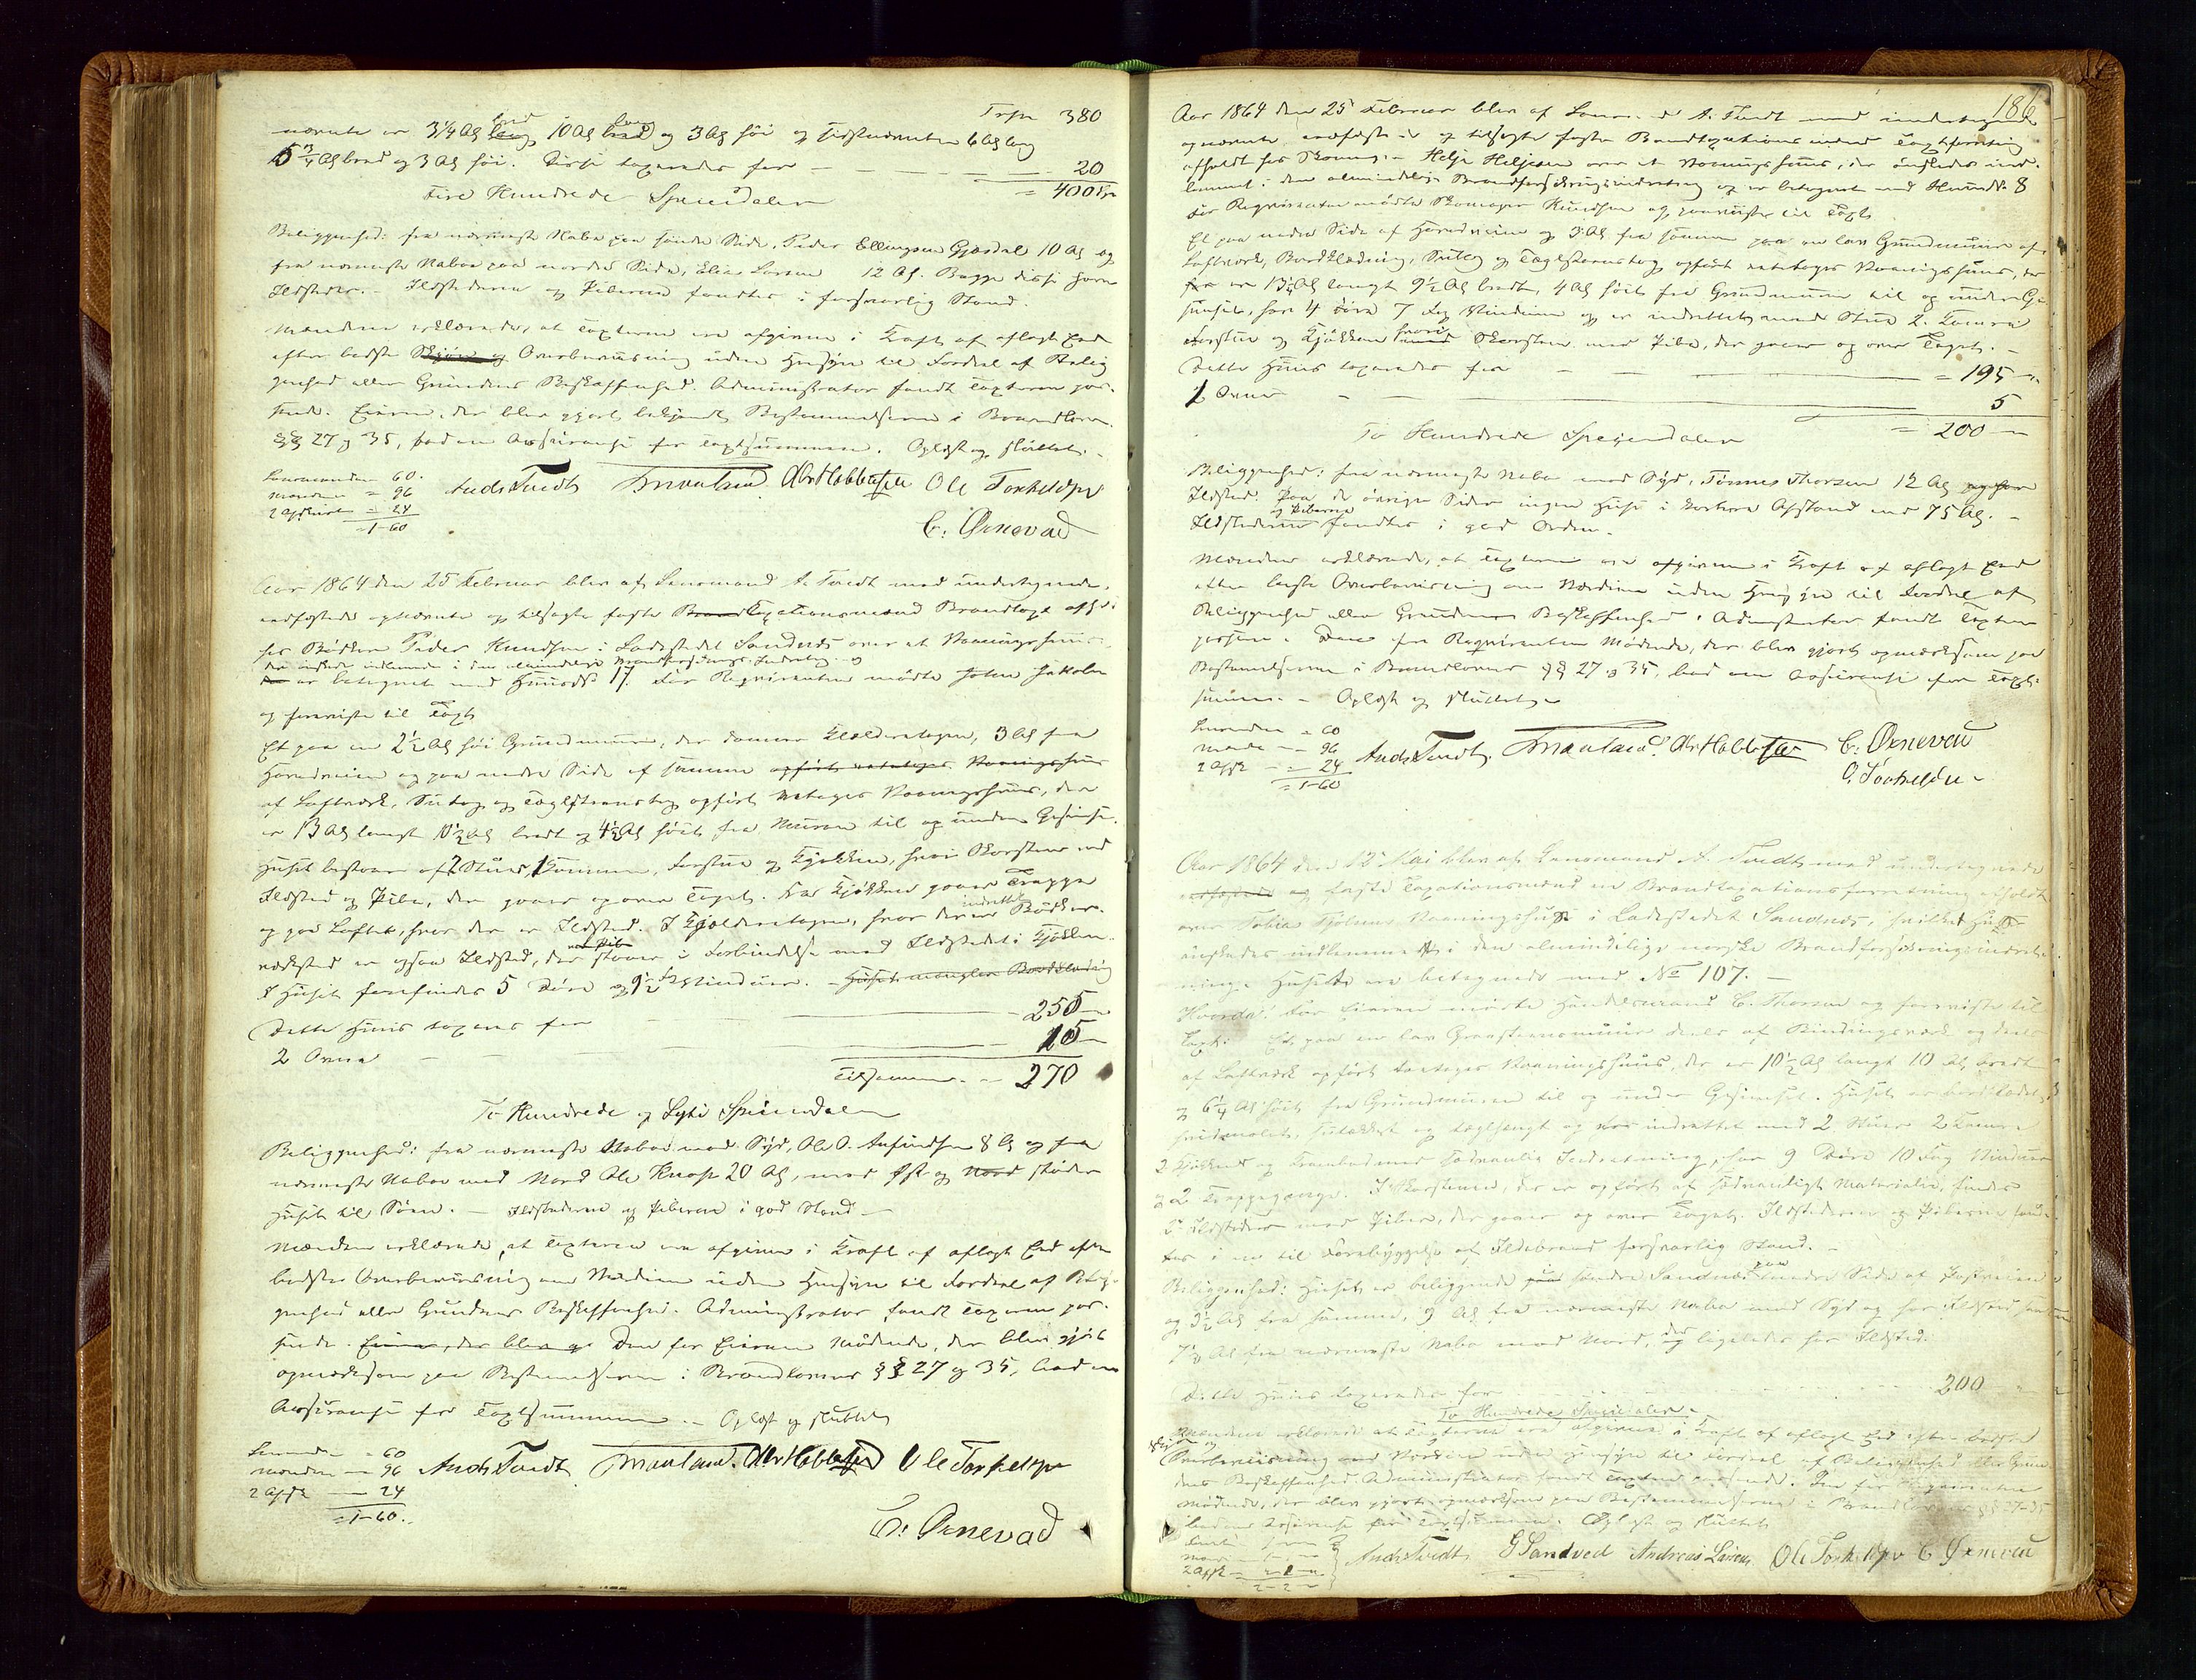 Trsp 380
nævnte er 3¼ Al lang bred 10 Al bred lang og 3 Al høi og sidstnævnte 6 Al lang
5¾ Al bred og 3 Al høi. Disse taxeredes for — 20
Fire Hundrede Speciedaler = 400 Spd
Beliggenhed: fra nærmeste Nabo paa søndre Side, Peder Ellingsen Gjøsdal 10 Al og
fra nærmeste Nabo paa nordre Side, Elias Larsen 12 Al. Begge disse have
Ildsteder. – Ildstederne og Piberne fandtes i forsvarlig Stand.
Mændene erklærede, at Taxterne ere afgivne i Kraft af aflagt Eed
efter bedste Skjøn og Overbeviisning uden Hensyn til Fordeel af Belig
genhed eller Grundens Beskaffenhed. Administrator fandt Taxterne pas-
sende. Eieren, der blev gjort bekjendt Bestemmelserne i Brandloven
§§ 27 og 35, bad om Assurance for Taxtsummen. Oplæst og sluttet. –
Lensmanden 60.
Mændene = 96
2 Afskrift = 24
= 1-60
Ands Tvedt Abr Hobbesen Ole Torkelsen
C. Ørnevad
Aar 1864 den 25 Februar blev af Lensmand A. Tvedt med undertegnede,
edfæstede opnævnte og tilsagte faste Brand Taxationsmænd Brandtaxt afh
hos Bødker Peder Knudsen i Ladestedet Sandnæs over et Vaaningshuus
der ønskes indlemmet i den almindelige Brandforsikrings Indretning og
er betegnet med Huusnr 17. For Reqvirenten mødte John Jakobs
og foreviste til Taxt
Et paa en 2½ Al høi Grundmuur, der danner Kjælderetagen, 3 Al fra
Hovedveien og paa nedre Side af samme opført enetages Vaaningshuus
af Laftværk, Sutag og Taglsteenstag opført enetages Vaaningshuus, der
er 13 Al langt 10½ Al bredt og 4½ Al høit fra Muren til og under Gesimse.
Huset bestaaer af 2 Stuer, 1 Kammer, Forstue og Kjøkken, hvori Skorsteen med
Ildsted og Pibe, der gaaer op over Taget. Fra Kjøkken gaaer Trappe
op paa Loftet, hvor der er Ildsted. I Kjælderetagen, hvor der er indrettet Bødker-
værksted er ogsaa Ildsted, der med Pibe staaer i Forbindelse med Ildstedet i Kjøkken
I Huset forefindes 5 Døre og 9½ Fag Vinduer. – Huset mangler Bordklædning
Dette Huus taxeres for — 255
2 Ovne — 15
Tilsammen — 270
To Hundrede og Sytti Speciedaler
Beliggenhed: fra nærmeste Nabo mod Syd, Ole O. Aufindsen 8 Al og fra
nærmeste Nabo mod Nord Ole Knass 20 Al, mod Øst og Nord støder
Huset til Søen. – Ildstederne og Piberne i god Stand –
Mændene erklærede, at Taxterne ere afgivne i Kraft af aflagt Eed efter
bedste Overbeviisning om Værdien uden Hensyn til Fordeel af Belig-
genhed eller Grundens Beskaffenhed. Administrator fandt Taxterne pas-
sende. Eieren, der blev gj Den for Eieren Mødende, der blev gjort
opmærksom paa Bestemmelserne i Brandlovens §§ 27 og 35, bad om
Assurance for Taxtsummen. – Oplæst og sluttet
Lensmanden = 60
Mændene — 96
2 Afskr — 24
= 1-60.
Ands Tvedt Abr Hobbesen Ole Torkelsen
C. Ørnevad
186
Aar 1864 den 25 Februar blev af Lensmand A. Tvedt med undertegnede
opnævnte, edfæstede og tilsagte faste Brandtaxationsmænd Taxtforretning
afholdt hos Skomager Helje Heljesen over et Vaaningshuus, der ønskedes ind-
lemmet i den almindelige Brandforsikringsindretning og er betegnet med Huusnr 8
For Reqvirenten mødte Skomager Knudsen og foreviste til Taxt
Et paa nedre Side af Hovedveien og 3 Al fra samme paa en lav Grundmuur af
Laftværk, Bordklædning, Sutag og Taglsteenstag opført enetages Vaaningshuus, der
er 13¼ Al langt 9½ Al bredt, 4 Al høit fra Grundmuren til og under Ge-
simset, har 4 Døre 7 Fag Vinduer og er indrettet med Stue 2 Kamre
Forstue og Kjøkken hvori Skorsteen med Pibe, der gaaer op over Taget. –
Dette Huus taxeredes for — = 195
1 Ovne — 5
= 200
To Hundrede Speciedaler
Beliggenhed: fra nærmeste Nabo mod Syd, Tønnes Thorsen 12 Al og har
Ildsted. Paa de øvrige Sider ingen Huse i kortere Afstand end 75 Al. –
Ildstederne og Piberne fandtes i god Orden.
Mændene erklærede, at Taxterne ere afgivne i Kraft af aflagt Eed
efter bedste Overbeviisning om Værdien uden Hensyn til Fordeel af
Beliggenhed eller Grundens Beskaffenhed. Administrator fandt Taxterne
passende. Den for Reqvirenten Mødende, der blev gjort opmærksom paa
Bestemmelserne i Brandlovens §§ 27 og 35, bad om Assurance for Taxt-
summen. – Oplæst og sluttet
Lensmanden = 60
Mændene — 96
2 Afskr — = 24
= 1-60
Ands Tvedt Abr Hobbesen C. Ørnevad
O. Torkelsen
Aar 1864 den 12 Mai blev af Lensmand A. Tvedt med undertegnede
edfæstede og faste Taxationsmænd en Brandtaxationsforretning afholdt
over Tobias Vaaningshuse i Ladestedet Sandnæs, hvilket Huus
ønskedes indlemmet i den almindelige norske Brandforsikringsindret-
ning. Huset er betegnet med No 107. –
For Eieren mødte Handelsmand C. Thorsen og foreviste til
Taxt: Et paa en lav Graasteensmuur deels af Bindingsværk og deels
af Laftværk opført toetages Vaaningshuus, der er 10½ Al langt 10 Al bredt
og 6¼ Al høit fra Grundmuren til og under Gesimset. Huset er bordklædt,
hvidmalet, og taglhængt og er indrettet med 2 Stuer 2 Kamre
2 Kjøkkener og Krambod med sædvanlig Indretning, har 9 Døre 10 Fag Vinduer
og 2 Trappegange. I Skorstenen, der er opført af sædvanligt Materiale, findes
2 Ildsteder med Piber, der gaaer op over Taget. Ildstederne og Piberne fand-
tes i en til Forebyggelse af Ildebrand forsvarlig Stand. –
Beliggenhed: Huset er beliggende søndre Sandnæs paa nedre Side af Postveien
og 3½ Al fra samme, 9 Al fra nærmeste Nabo mod Syd og har Ildsted
7½ Al fra nærmeste Nabo mod Nord, der ligeledes har Ildsted.
Dette Huus taxeredes for — 200
To Hundrede Speciedaler –
Mændene erklærede at Taxterne ere afgivne i Kraft af aflagt Eed efter bedste
Skjøn og Overbeviisning om Værdien uden Hensyn til Fordeel af Beliggenhed eller Grun-
dens Beskaffenhed. Administrator fandt Taxterne passende. Den for Reqvirenten
Mødende, der blev gjort opmærksom paa Bestemmelserne i Brandlovens §§ 27-35
Assurance for Taxtsummen. Oplæst og sluttet
2 Afskr
Ands Tvedt G Sandved Andreas Larsen Ole Torkelsen C Ørnevad